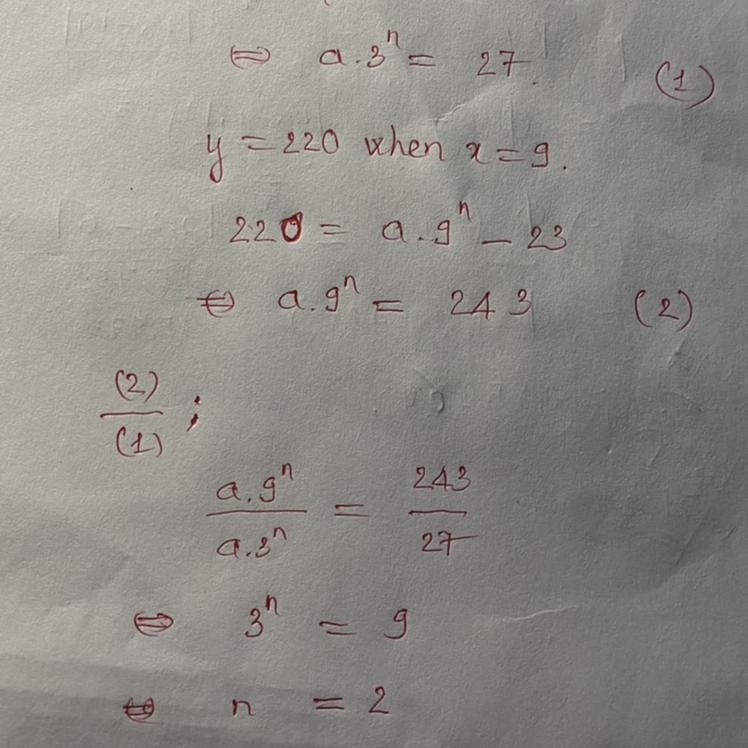 ⇔ a.3ⁿ = 27. (1)
y = 220 when x = 9.
220 = a.9ⁿ - 23
⇔ a.9ⁿ = 243 (2)
(2)/(1) ;
a.9ⁿ/a.3ⁿ = 243/27
⇔ 3ⁿ = 9
⇔ n = 2